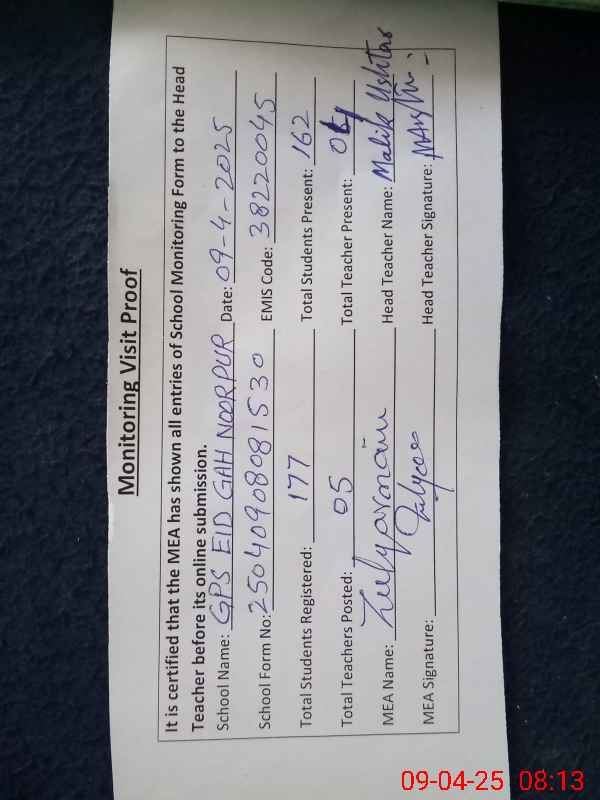 Monitoring Visit Proof
It is certified that the MEA has shown all entries of School Monitoring Form to the Head
Teacher before its online submission.
School Name: GPS EID GAH NOORPUR Date: 09-4-2025
School Form No: 25040908081530 EMIS Code: 38220045
Total Students Registered: 177 Total Students Present: 162
Total Teachers Posted: 05 Total Teacher Present: 04
MEA Name: Head Teacher Name: Malik
MEA Signature: Head Teacher Signature:
09-04-25 08:13